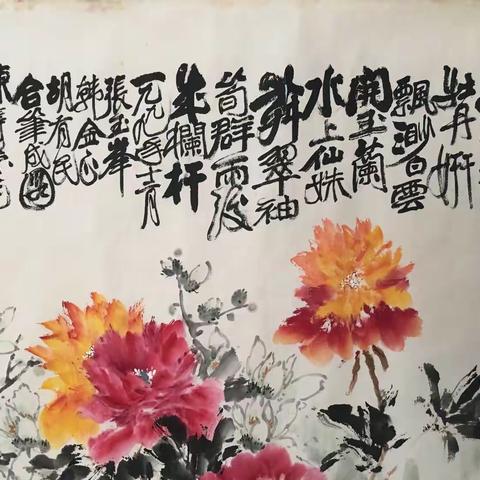 牡丹妍
飄渺白雲
開玉蘭
水上仙姝
舞翠袖
筍群雨後
朱欄杆
一九九年十一月
張玉峯
韓金山
胡有民
合筆成圖